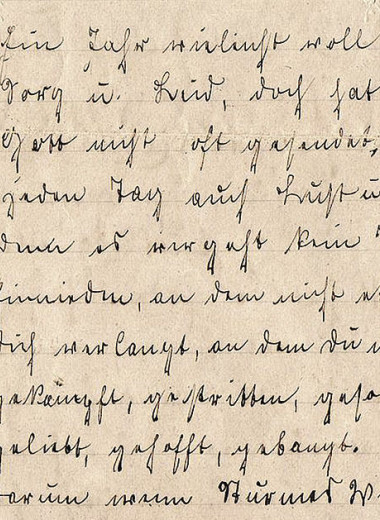 Ein Jahr vielleicht voll
Sorg u. Leid, doch hat
Gott nicht oft gesendet,
jeden Tag auch Lust u
denn es vergeht kein
hinnieden, an dem nicht
dich verlangt, an dem du
gekämpft, gestritten,
geliebt, gehofft, gebangt.
darum wenn Sturmes